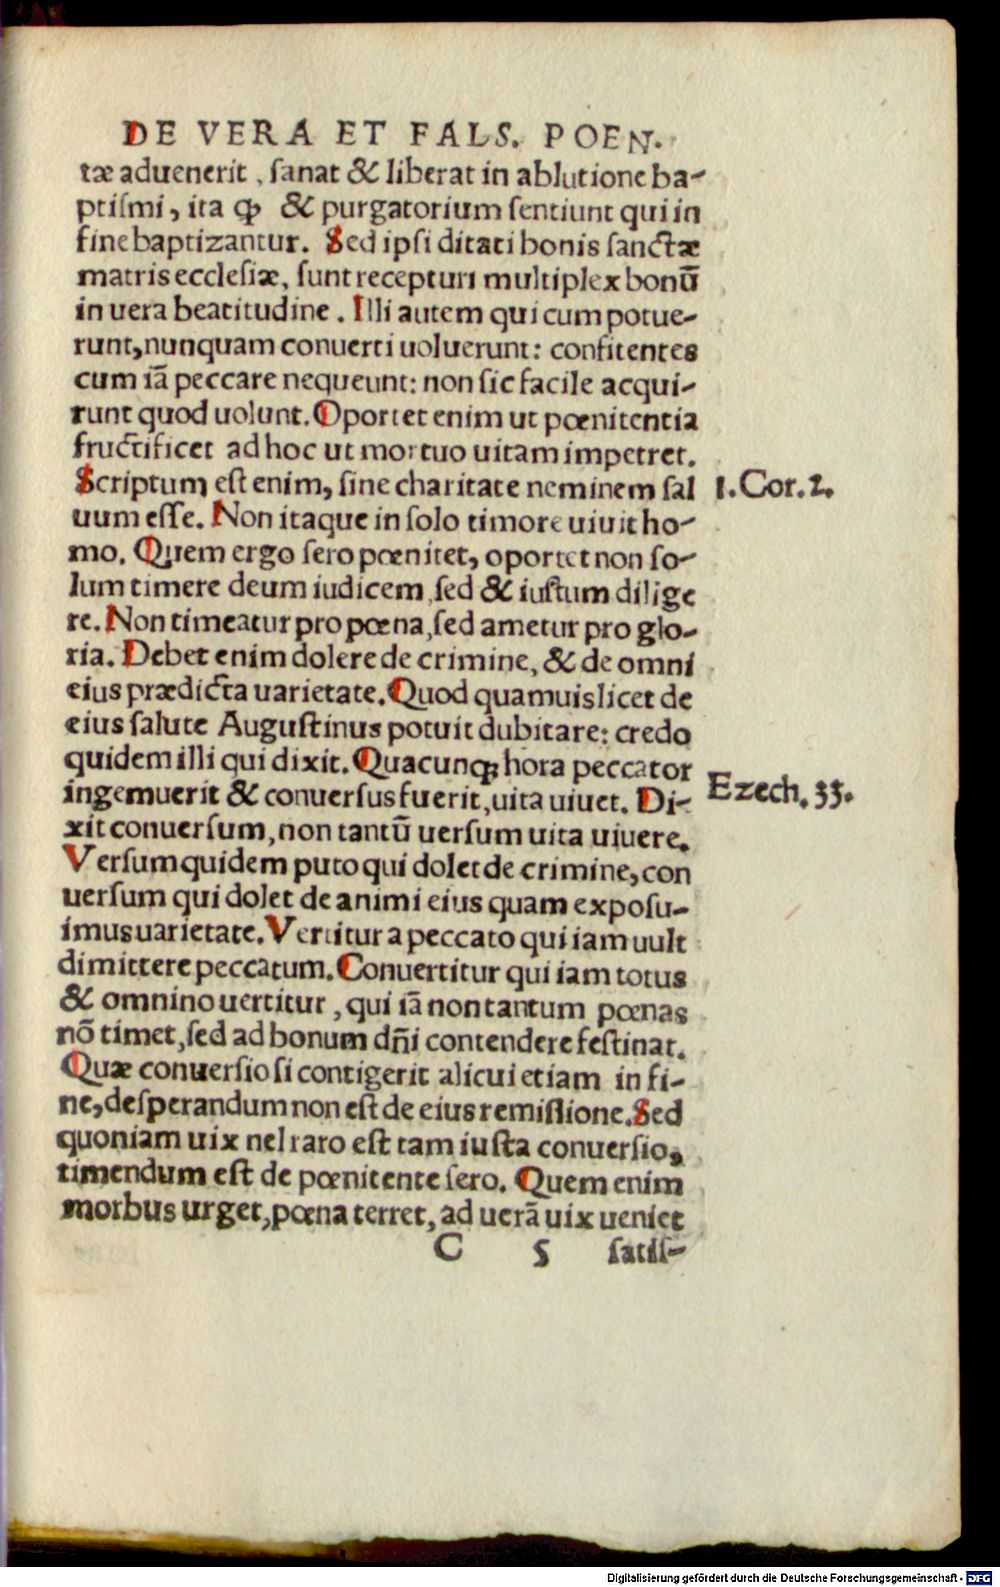 DE VERA ET FALS. POEN.
tæ aduenerit, ſanat & liberat in ablutione ba-
ptiſmi, ita ꝙ & purgatorium ſentiunt qui in
fine baptizantur. Sed ipſi ditati bonis ſanctæ
matris eccleſiæ, ſunt recepturi multiplex bonū
in uera beatitudine. Illi autem qui cum potue-
runt, nunquam conuerti uoluerunt: confitentes
cum iā peccare nequeunt: non ſic facile acqui-
runt quod uolunt. Oportet enim ut pœnitentia
fructificet ad hoc ut mortuo uitam impetret.
Scriptum eſt enim, ſine charitate neminem ſal
1. Cor. 2.
uum eſſe. Non itaque in ſolo timore uiuit ho-
mo. Quem ergo ſero pœnitet, oportet non ſo-
lum timere deum iudicem, ſed & iuſtum dilige
re. Non timeatur pro pœna, ſed ametur pro glo-
ria. Debet enim dolere de crimine, & de omni
eius prædicta uarietate. Quod quamuis licet de
eius ſalute Auguſtinus potuit dubitare: credo
quidem illi qui dixit. Quacunqꝫ hora peccator
ingemuerit & conuerſus fuerit, uita uiuet. Di-
Ezech. 33.
xit conuerſum, non tantū uerſum uita uiuere.
Verſum quidem puto qui dolet de crimine, con
uerſum qui dolet de animi eius quam expoſu-
imus uarietate. Vertitur a peccato qui iam uult
dimittere peccatum. Conuertitur qui iam totus
& omnino uertitur, qui iā non tantum pœnas
nō timet, ſed ad bonum dn̄i contendere feſtinat.
Quæ conuerſio ſi contigerit alicui etiam in fi-
ne, deſperandum non eſt de eius remiſſione. Sed
quoniam uix nel raro eſt tam iuſta conuerſio,
timendum eſt de pœnitente ſero. Quem enim
morbus urget, pœna terret, ad uerā uix ueniet
C 5 ſatiſ-
Digitalisierung gefördert durch die Deutsche Forschungsgemeinschaft - DFG